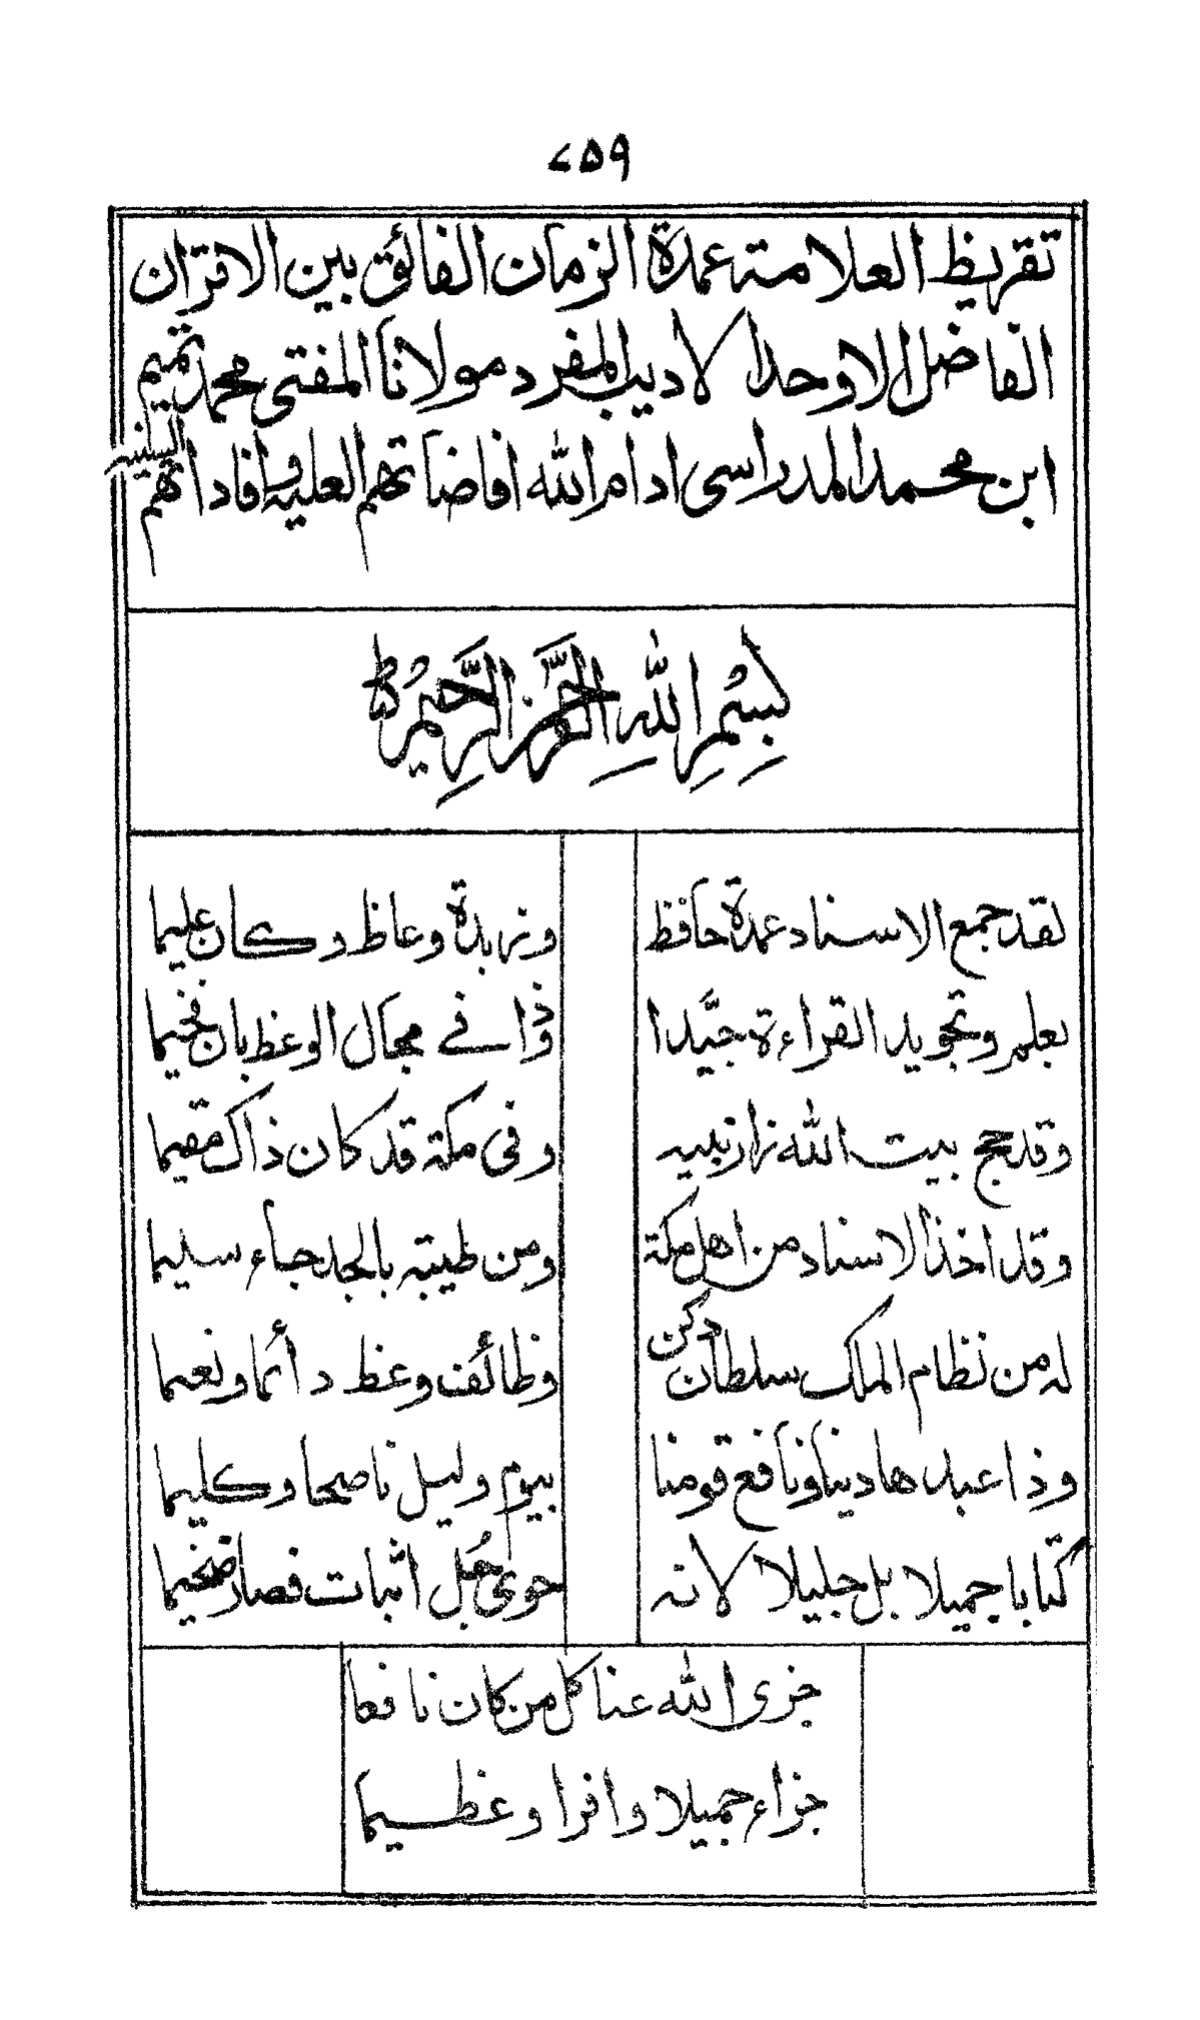 ۷۵۹
تقريظ العلامة عمدة الزمان الفائق بين الاقران
الفاضل الاوحد الاديب المفرد مولانا المفتى محمد تميم
ابن محمد المدراسى ادام الله افاضاتهم العليه وافاداتهم السنيه
بِسْمِ اللهِ الرَّحْمٰنِ الرَّحِيْمِ ط
لقد جمع الاسناد عمدة حافظ وزبدة وعاظ وكان عليما
بعلم وتجويد القراءة جيّدا وذا في مجال الوعظ بان فخيما
وقد حج بيت الله زار نبيه وفى مكة قد كان ذاك مقيما
وقد اخذ الاسناد من اهل مكة ومن طيبته بالجد جاء سليما
له من نظام الملك سلطان دكن وظائف وعظ دائما ونعيما
وذا عبد هادينا ونافع قومنا بيوم وليل ناصحا وكليما
كتابا جميلا بل جليلا لانه حوى جُل اثبات فصار ضخيما
جزى الله عنا كل من كان نافعا
جزاء جميلا وافرا وعظيما